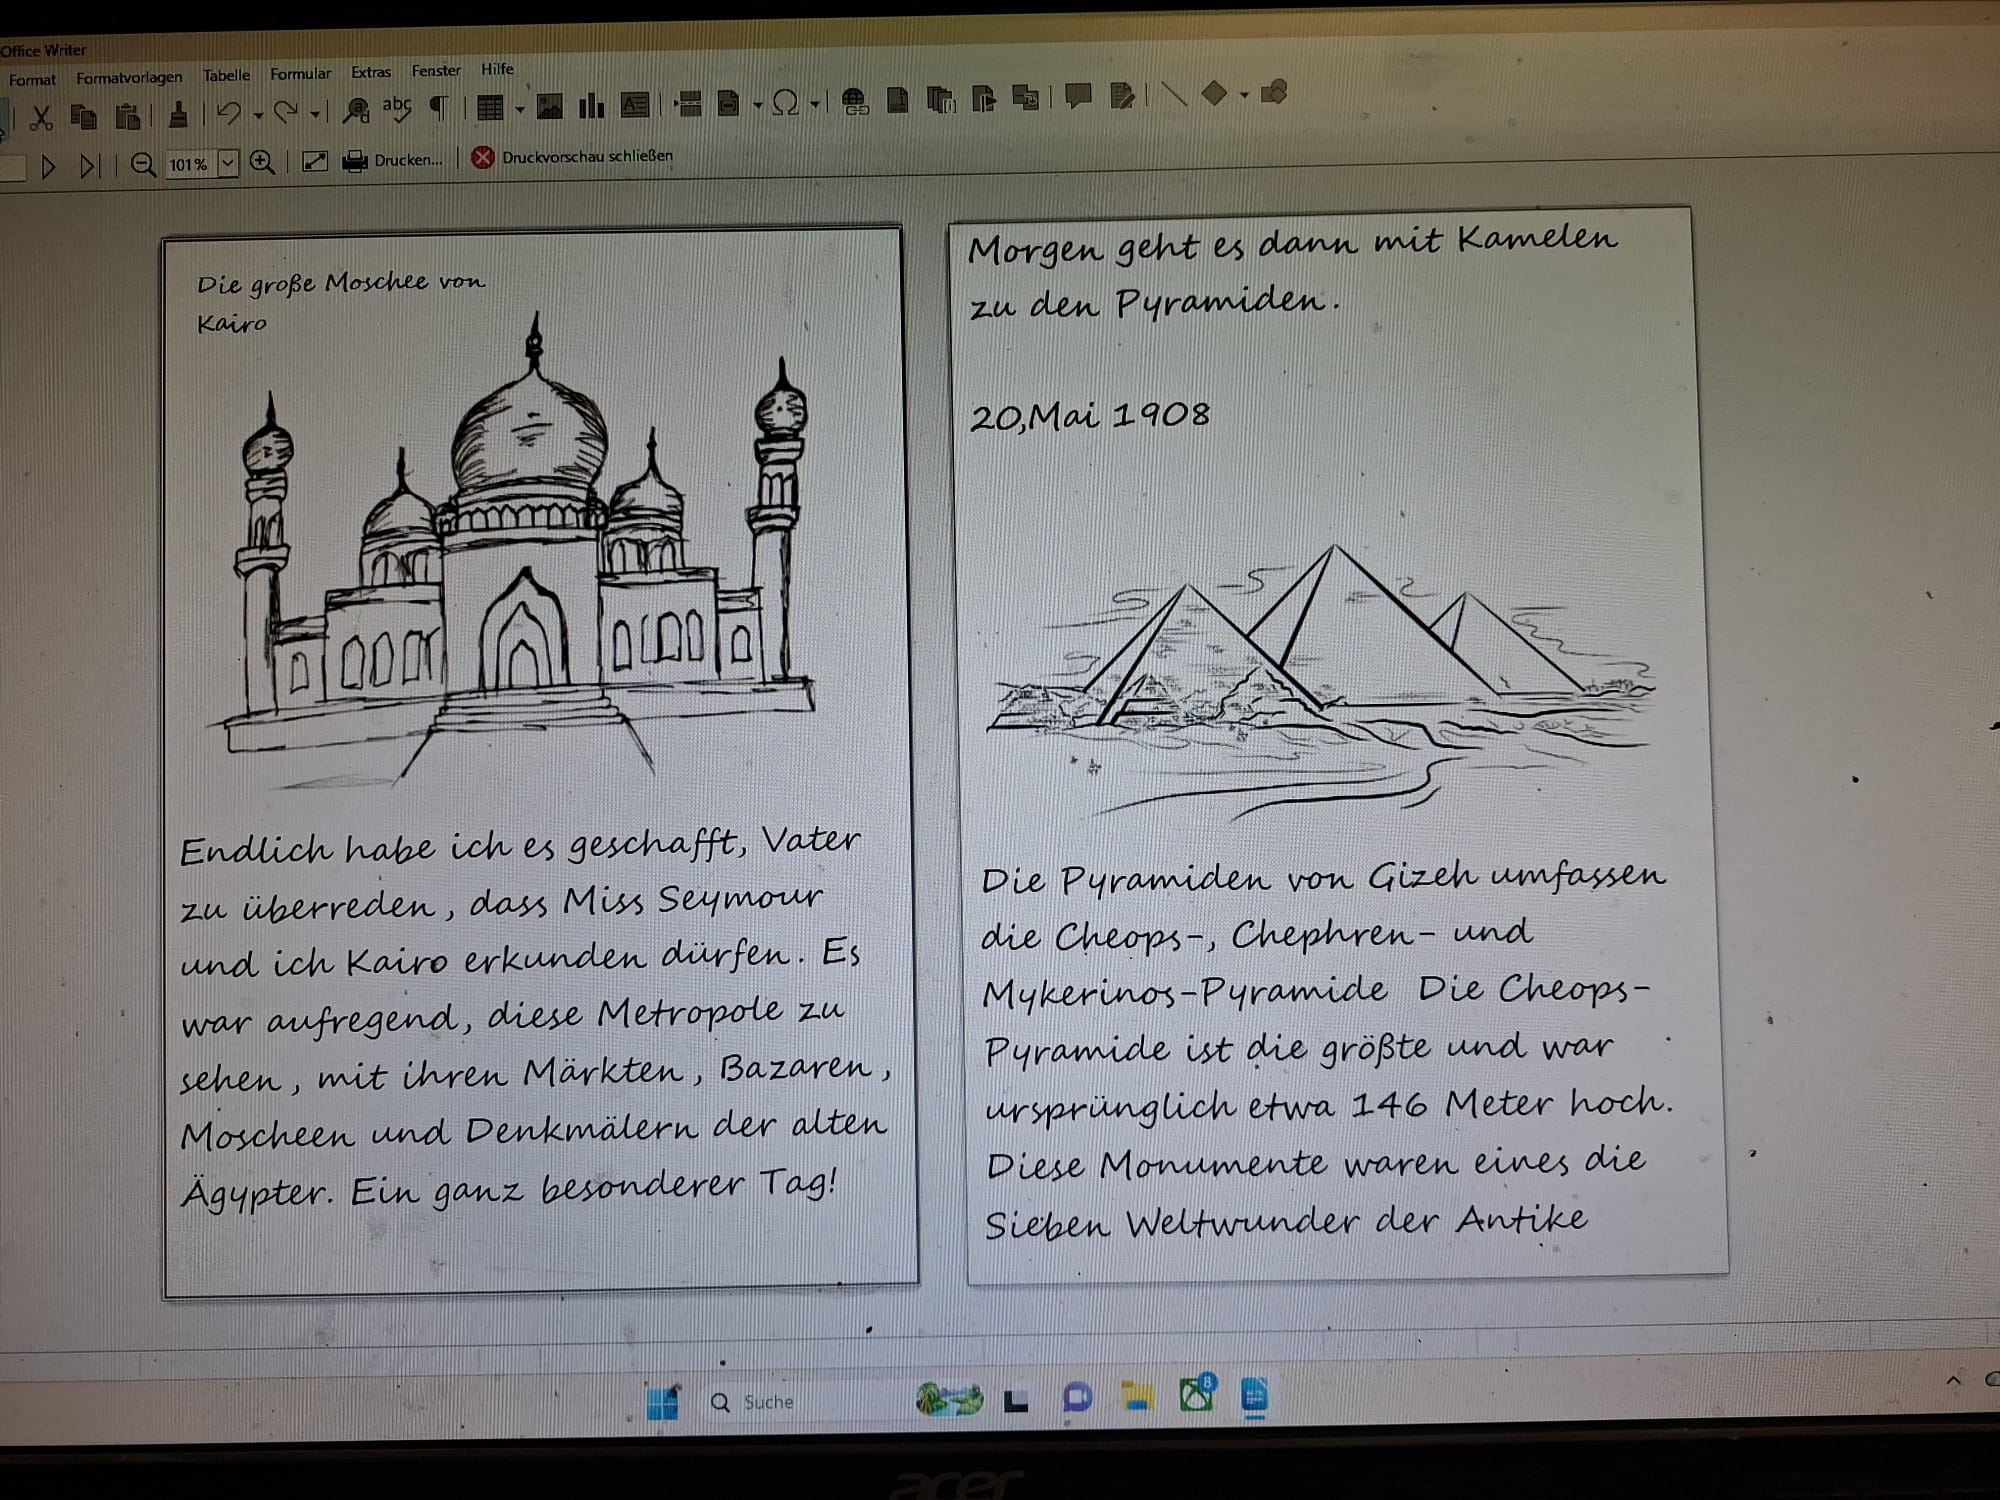 Office Writer
Format Formatvorlagen Tabelle Formular Extras Fenster Hilfe
101% Drucken... Druckvorschau schließen
Die große Moschee von
Kairo
Endlich habe ich es geschafft, Vater
zu überreden, dass Miss Seymour
und ich Kairo erkunden dürfen. Es
war aufregend, diese Metropole zu
sehen, mit ihren Märkten, Bazaren,
Moscheen und Denkmälern der alten
Ägypter. Ein ganz besonderer Tag!
Morgen geht es dann mit Kamelen
zu den Pyramiden.
20,Mai 1908
Die Pyramiden von Gizeh umfassen
die Cheops-, Chephren- und
Mykerinos-Pyramide Die Cheops-
Pyramide ist die größte und war
ursprünglich etwa 146 Meter hoch.
Diese Monumente waren eines die
Sieben Weltwunder der Antike
Suche
8
acer